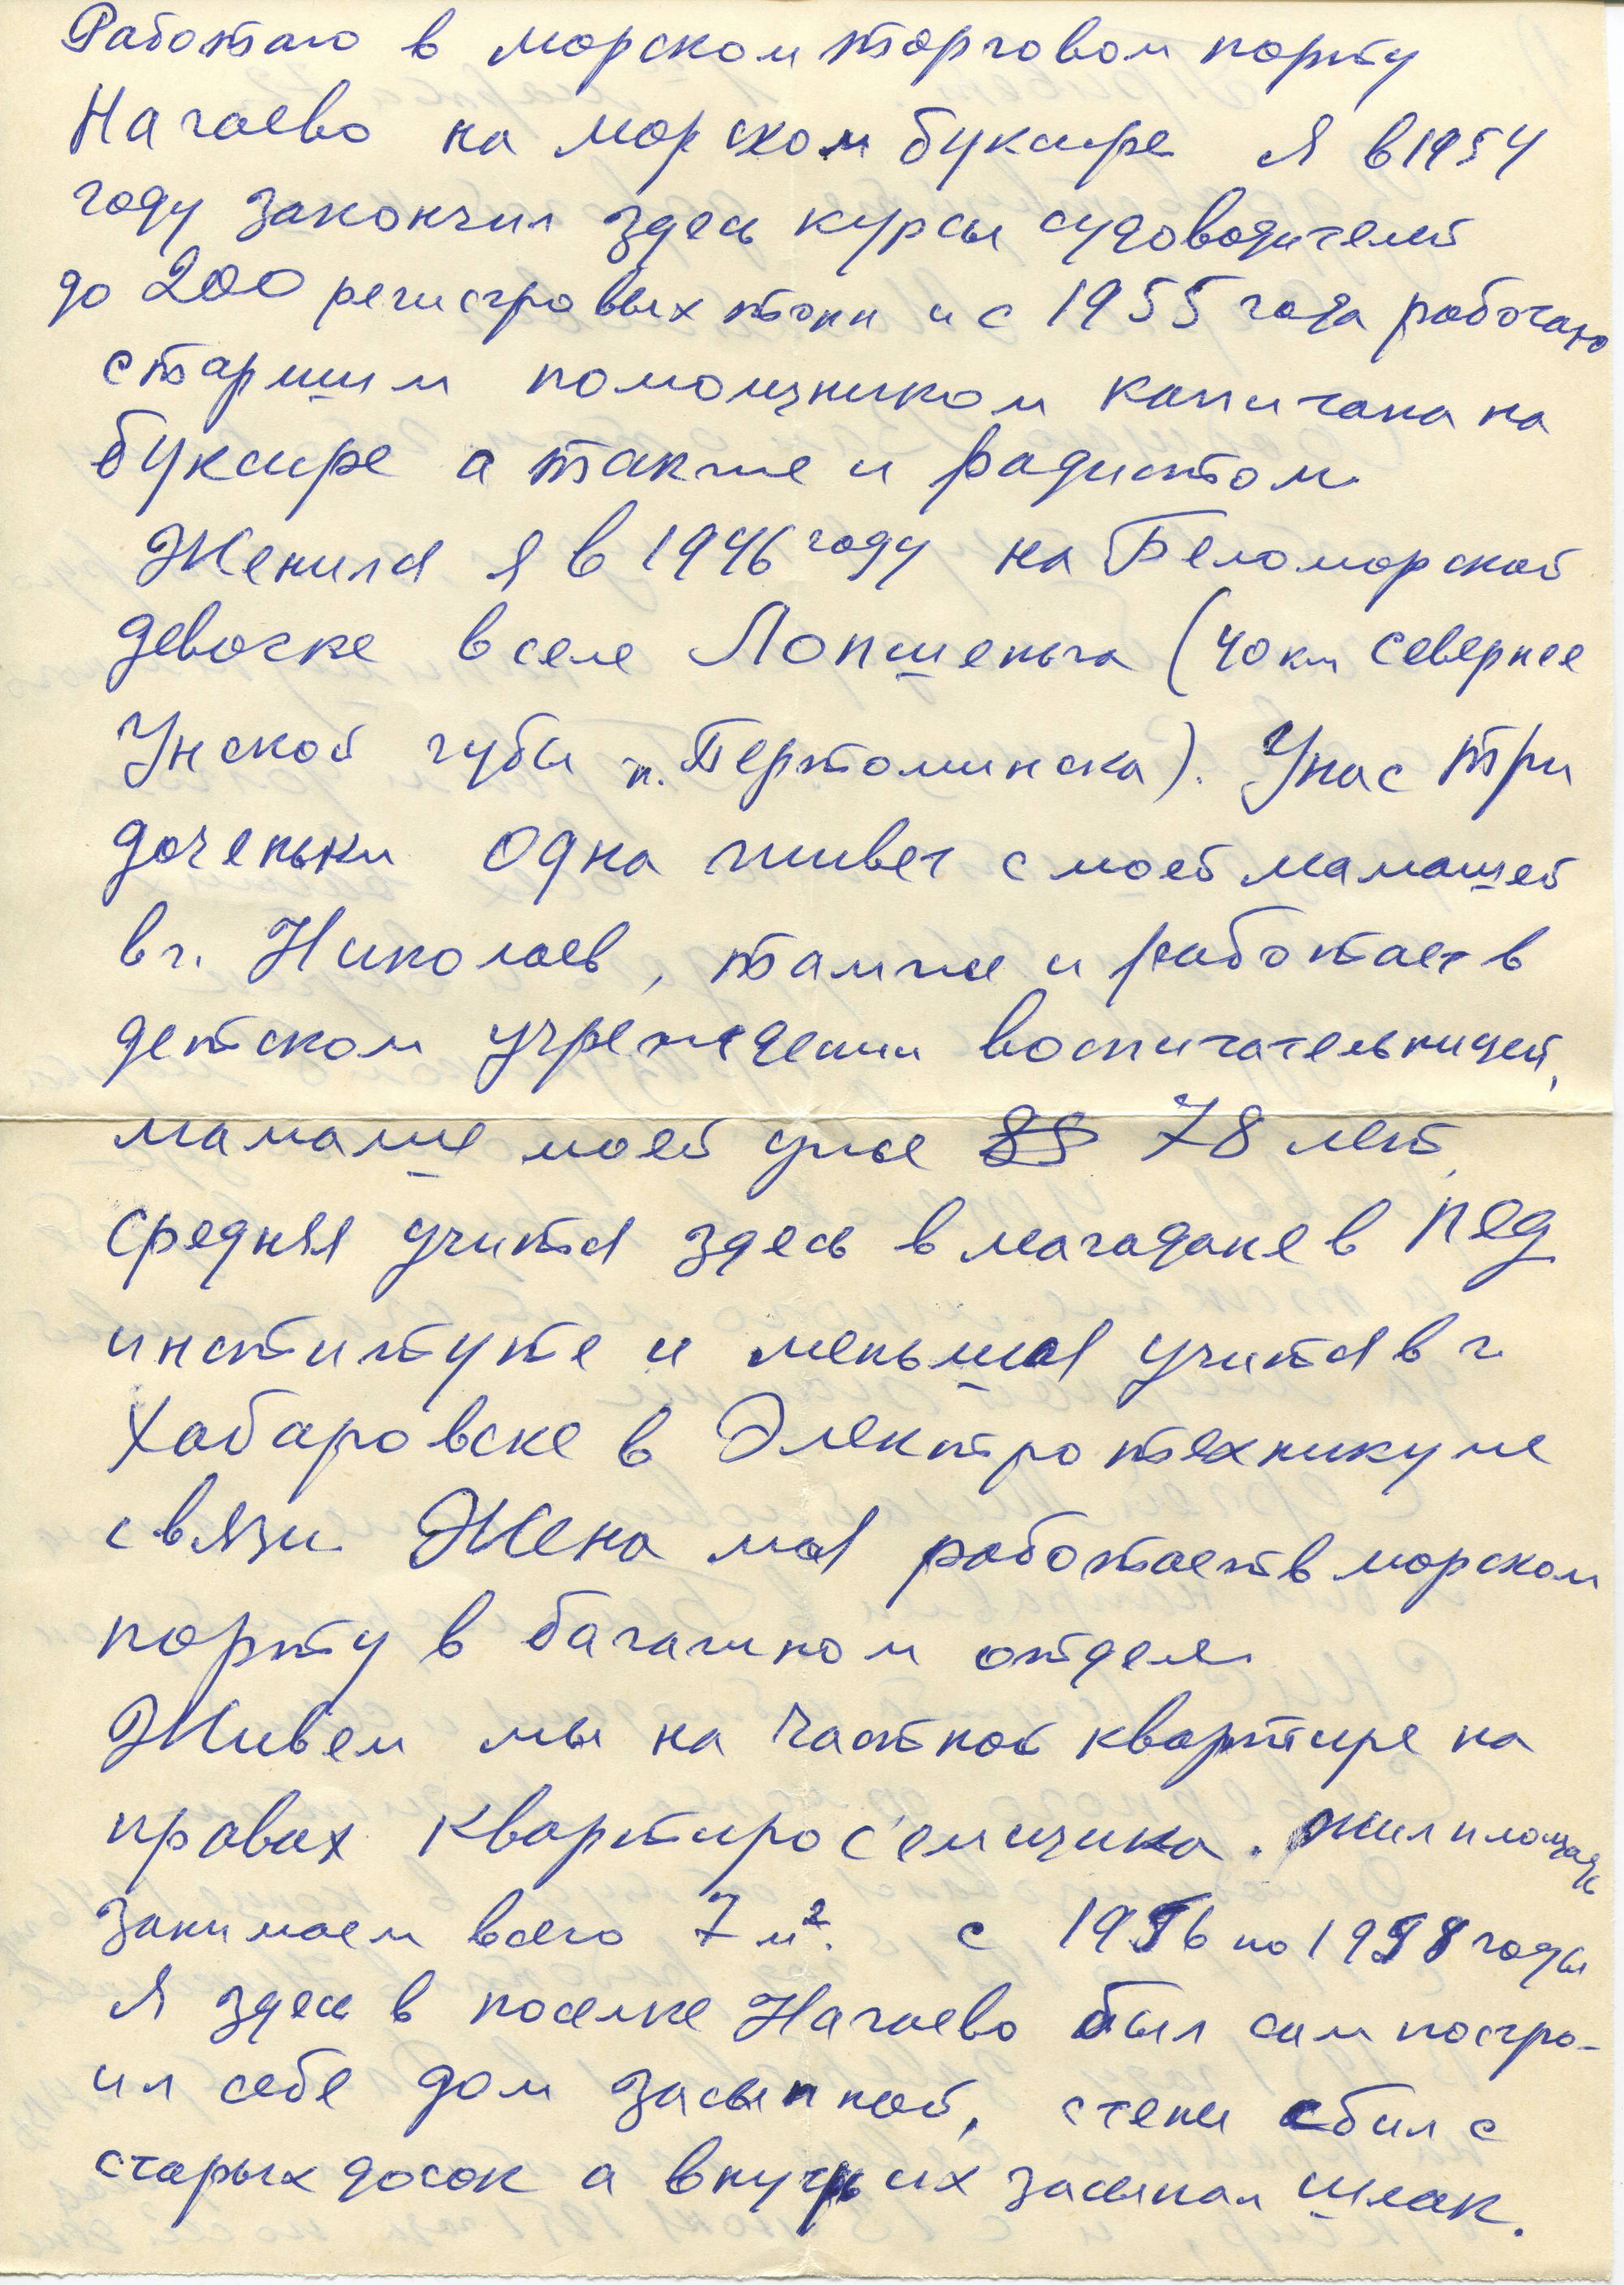 Работаю в морском торговом порту
Нагаево на морском буксире Я в 1954
году закончил здесь курсы судоводителей
до 200 регистровых тонн и с 1955 года работаю
старшим помощником капитана на
буксире а также и радистом
Женился Я в 1946 году на Беломорской
девочке в селе Лопшеньга (40 км севернее
Унской губы п. Пертоминска). У нас три
доченьки одна живет с моей мамашей
в г. Николаев, там же и работает в
детском учреждении воспитательницей,
мамаше моей уже 85 78 лет,
средняя учится здесь в магадане в пед
институте и меньшая учится в г.
Хабаровске в Электротехникуме
связи Жена моя работает в морском
порту в багажном отделе
Живем мы на частной квартире на
правах квартирос'емщика. Жилплощадь
занимаем всего 7 м². с 1956 по 1958 годы
Я здесь в поселке Нагаево был сам постро-
ил себе дом засыпной, стены сбил с
старых досок а внутрь их засыпал шлак.